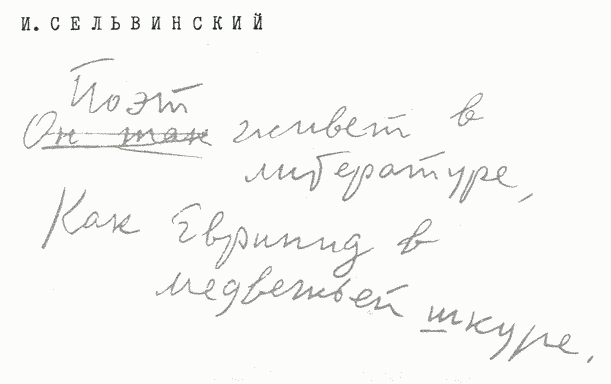 И. СЕЛЬВИНСКИЙ
Поэт
Он так живет в
литературе,
Как Еврипид в
медвежьей шкуре.